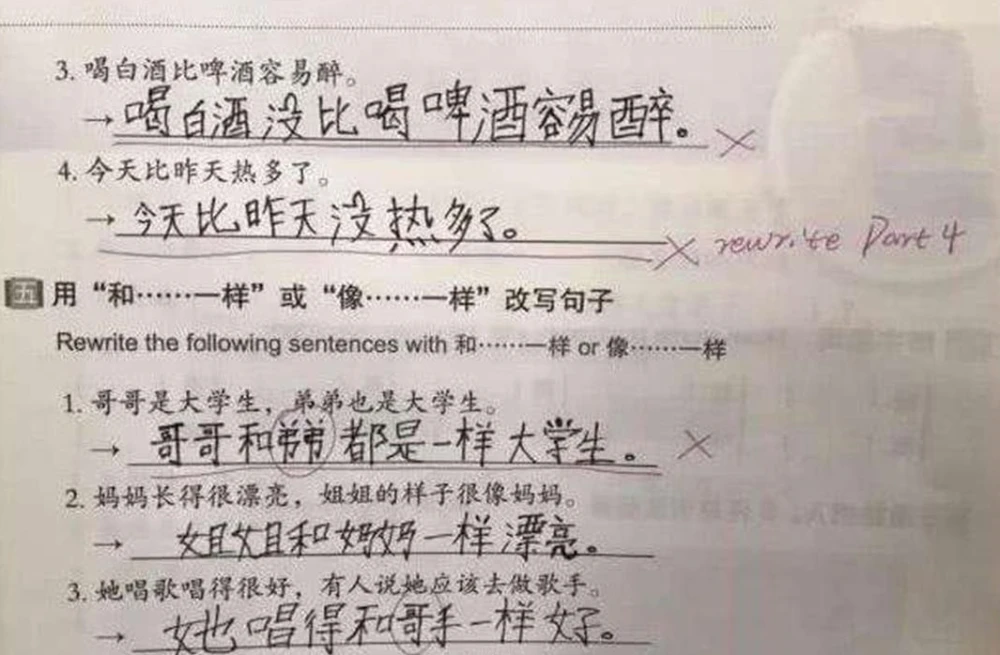 3. 喝白酒比啤酒容易醉。
→ 喝白酒没比喝啤酒容易醉。 ×
4. 今天比昨天热多了。
→ 今天比昨天没热多了。 × rewrite Part 4
五 用“和……一样”或“像……一样”改写句子
Rewrite the following sentences with 和……一样 or 像……一样
1. 哥哥是大学生，弟弟也是大学生。
→ 哥哥和弟弟都是一样大学生。 ×
2. 妈妈长得很漂亮，姐姐的样子很像妈妈。
→ 姐姐和妈妈一样漂亮。
3. 她唱歌唱得很好，有人说她应该去做歌手。
→ 她唱得和哥手一样好。